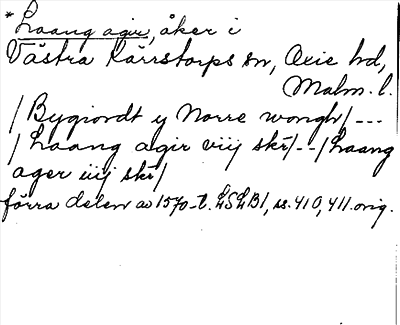 *Laang agir, åker i
Västra Kärrstorps sn, Oxie hd,
Malm. l.
/Bygiordt y Norre wongh/---
/Laang agir viij skr/--/Laang
ager iiij skr/
förra delen av 1570-t. LSLB1, ss. 410, 411. orig.